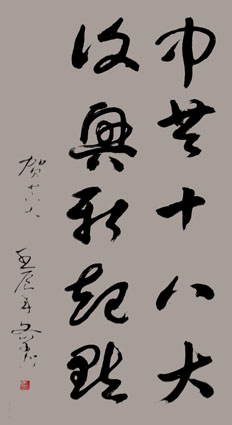 中共十八大
复兴新起点
贺十八大
壬辰年